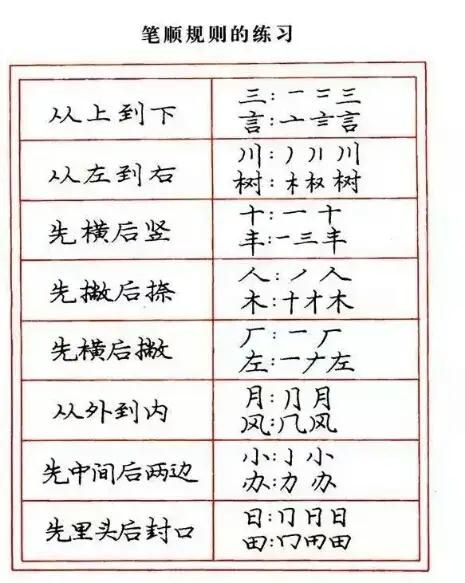 笔顺规则的练习
从上到下
三:一 二 三
言:亠 言 言
从左到右
川:丿 川 川
树:木 权 树
先横后竖
十:一 十
丰:一 三 丰
先撇后捺
人:丿 人
木:十 才 木
先横后撇
厂:一 厂
左:一 ナ 左
从外到内
月:⺆ 月
风:几 风
先中间后两边
小:亅 小
办:力 办
先里头后封口
日:冂 日 日
田:冂 田 田